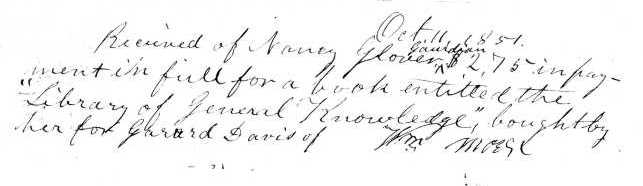 Oct. 11, 1851.
Received of Nancy Glover, Gaurdian $2,75 in pay-
ment in full for a book entitled the
"Library of General Knowledge", bought by
her for Garard Davis of Wm